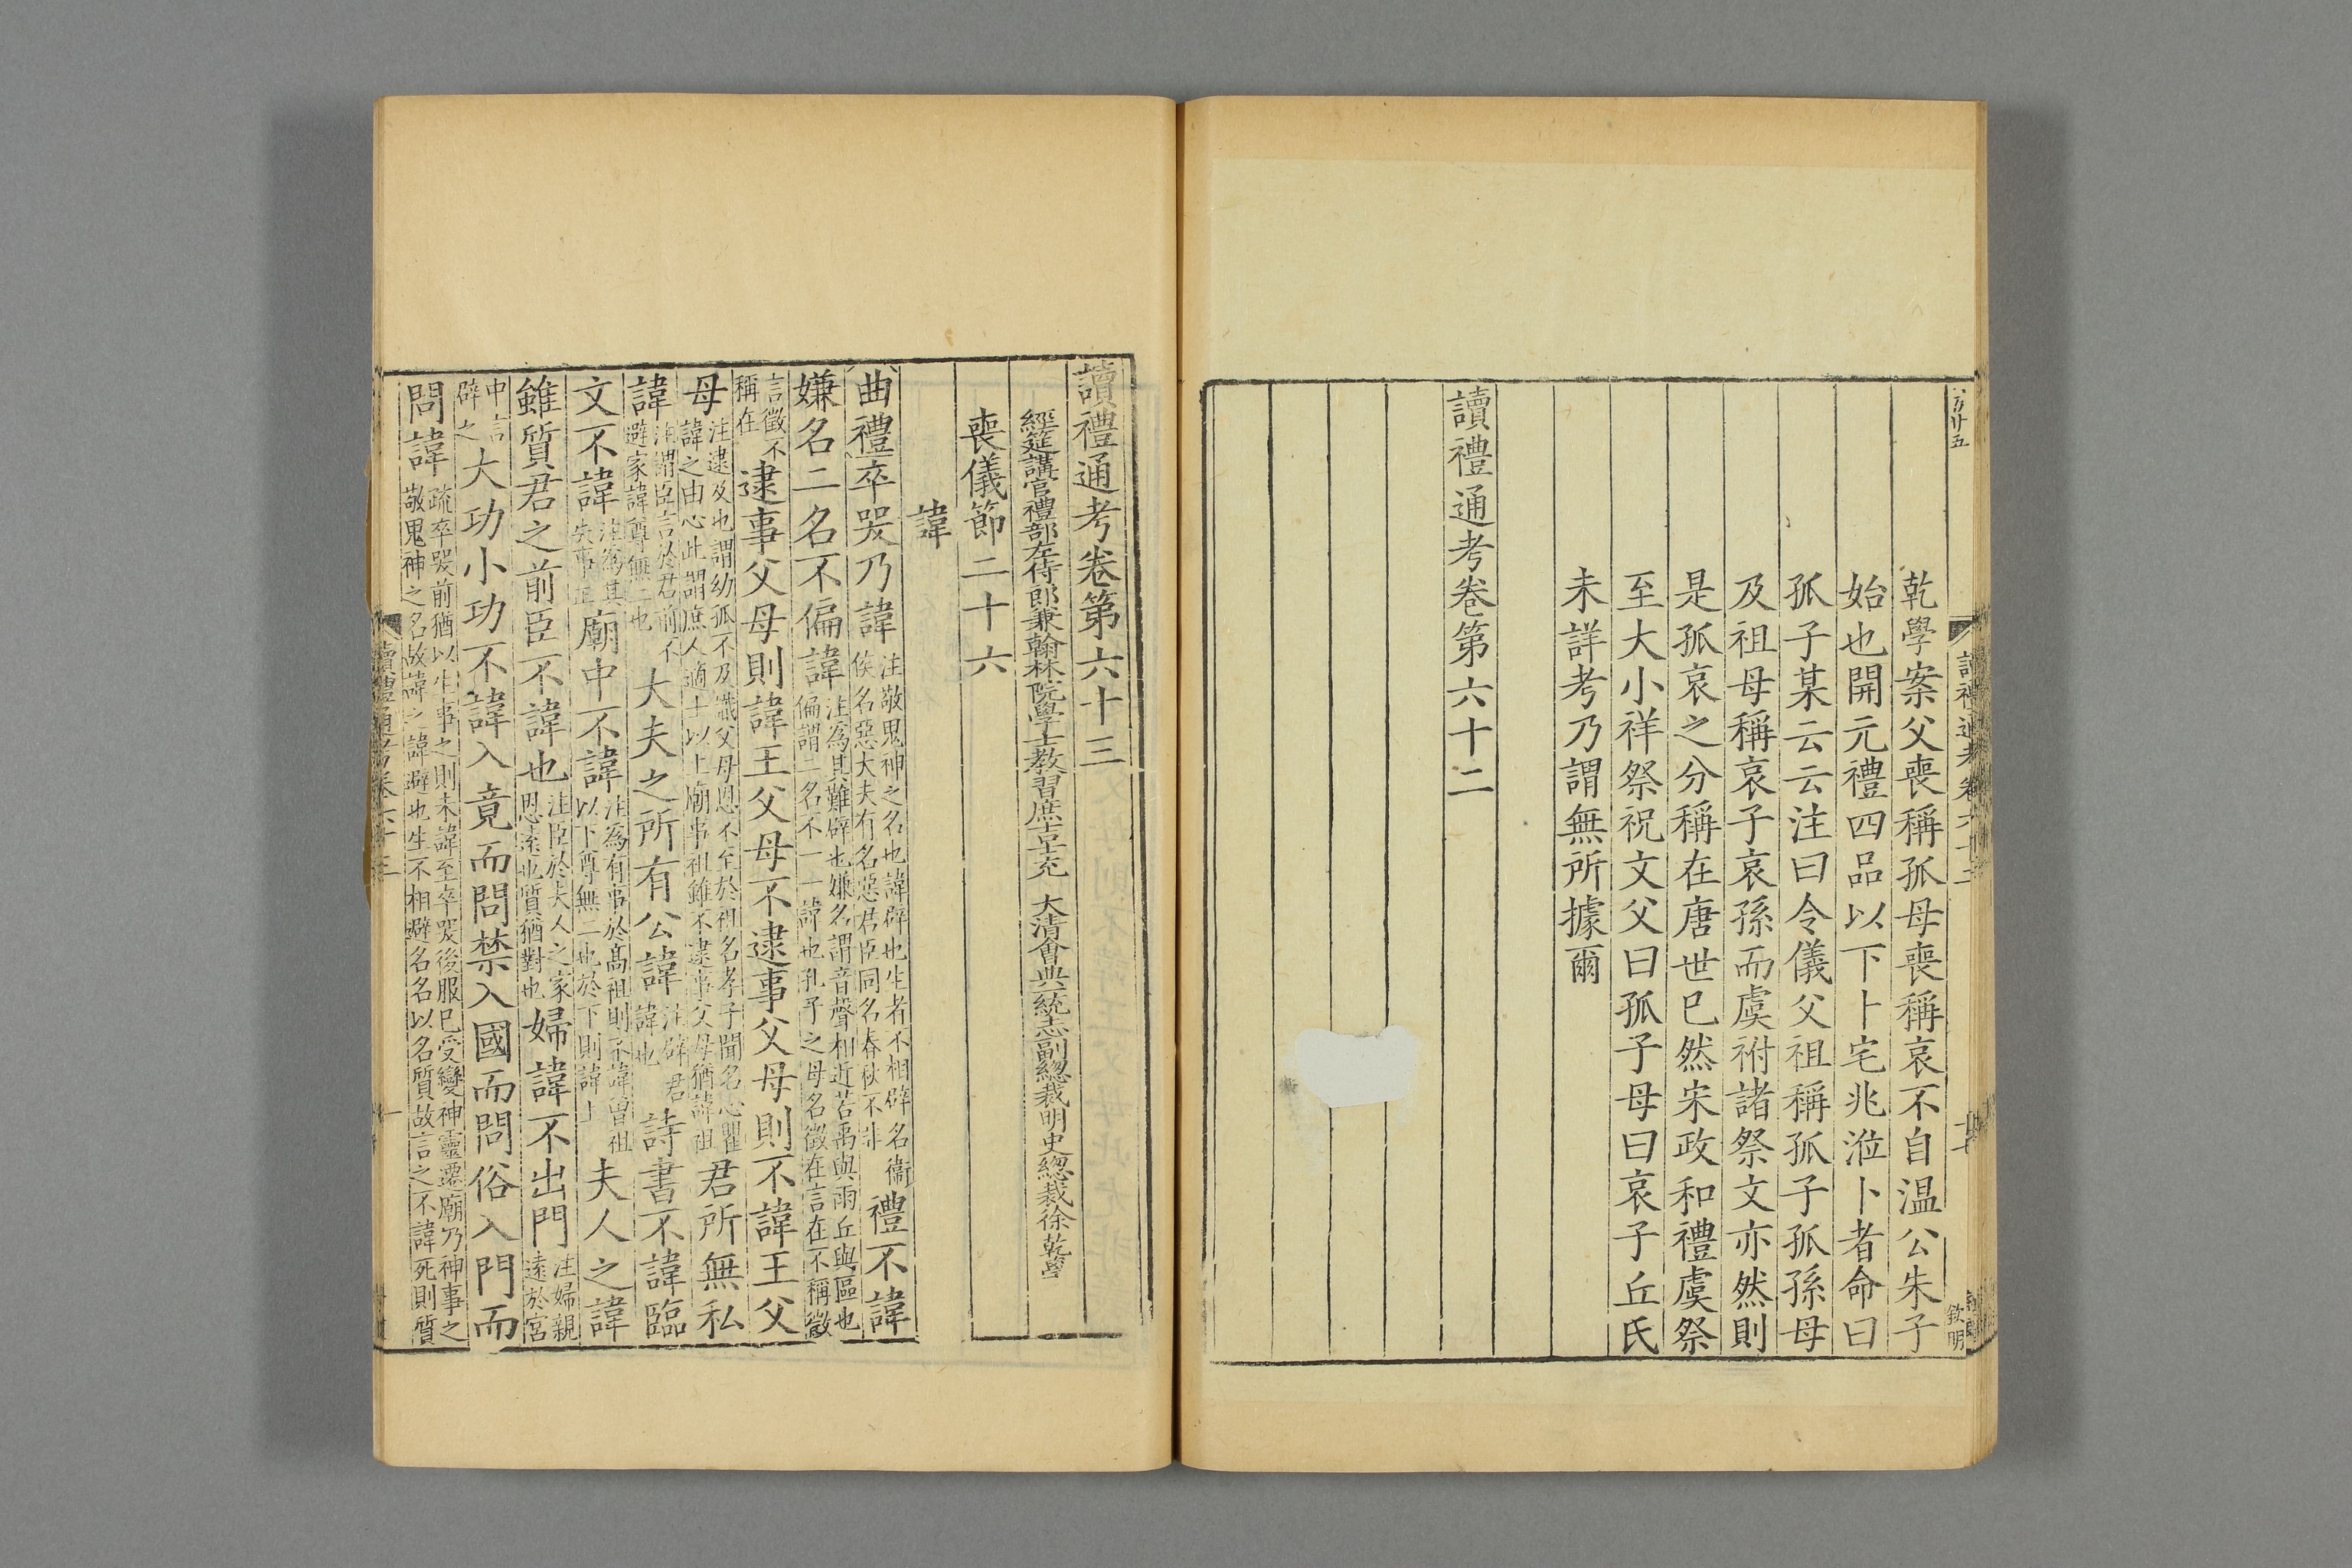 乾學案父喪稱孤母喪稱哀不自温公朱子
始也開元禮四品以下卜宅兆涖卜者命曰
孤子某云云注曰令儀父祖稱孤子孤孫母
及祖母稱哀子哀孫而虞祔諸祭文亦然則
是孤哀之分稱在唐世已然宋政和禮虞祭
至大小祥祭祝文父曰孤子母曰哀子丘氏
未詳考乃謂無所據爾
讀禮通考卷第六十二
讀禮通考卷第六十三
經筵講官禮部左侍郎兼翰林院學士教習庶吉士充 大清會典一統志副總裁明史總裁徐乾學
喪儀節二十六
諱
曲禮卒哭乃諱注敬鬼神之名也諱辟也生者不相辟名衞侯名惡大夫有名惡君臣同名春秋不非禮不諱
嫌名二名不偏諱注為其難辟也嫌名謂音聲相近若禹與雨丘與區也偏謂二名不一一諱也孔子之母名徵在言在不稱徵
言徵不稱在逮事父母則諱王父母不逮事父母則不諱王父
母注逮及也謂幼孤不及識父母恩不至於祖名孝子聞名心瞿諱之由心此謂庶人適士以上廟事祖雖不逮事父母猶諱祖君所無私
諱注謂臣言於君前不避家諱尊無二也大夫之所有公諱注辟君諱也詩書不諱臨
文不諱注為其失事正廟中不諱注為有事於高祖則不諱曾祖以下尊無二也於下則諱上夫人之諱
雖質君之前臣不諱也注臣於夫人之家恩遠也質猶對也婦諱不出門注婦親遠於宮
中言辟之大功小功不諱入竟而問禁入國而問俗入門而
問諱疏卒哭前猶以生事之則未諱至卒哭後服已受變神靈遷廟乃神事之敬鬼神之名故諱之諱避也生不相避名名以名質故言之不諱死則質
讀禮通考卷六十三